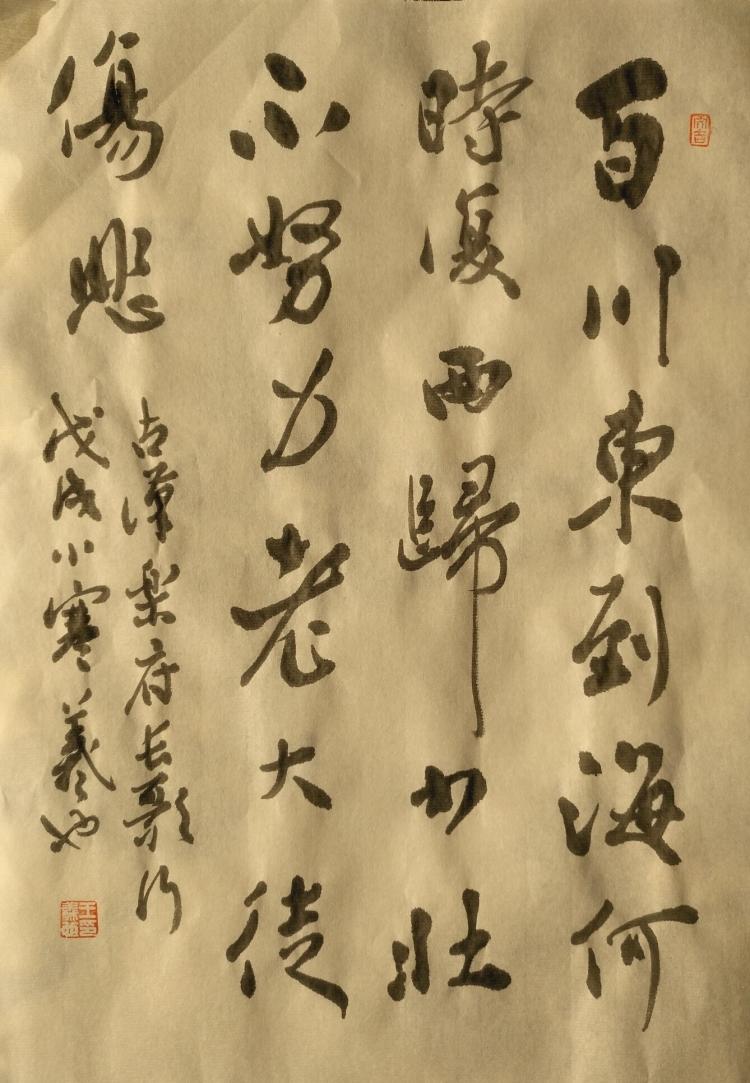 百川東到海何
時復西歸少壯
不努力老大徒
傷悲
古漢樂府長歌行
戊戌小寒義也